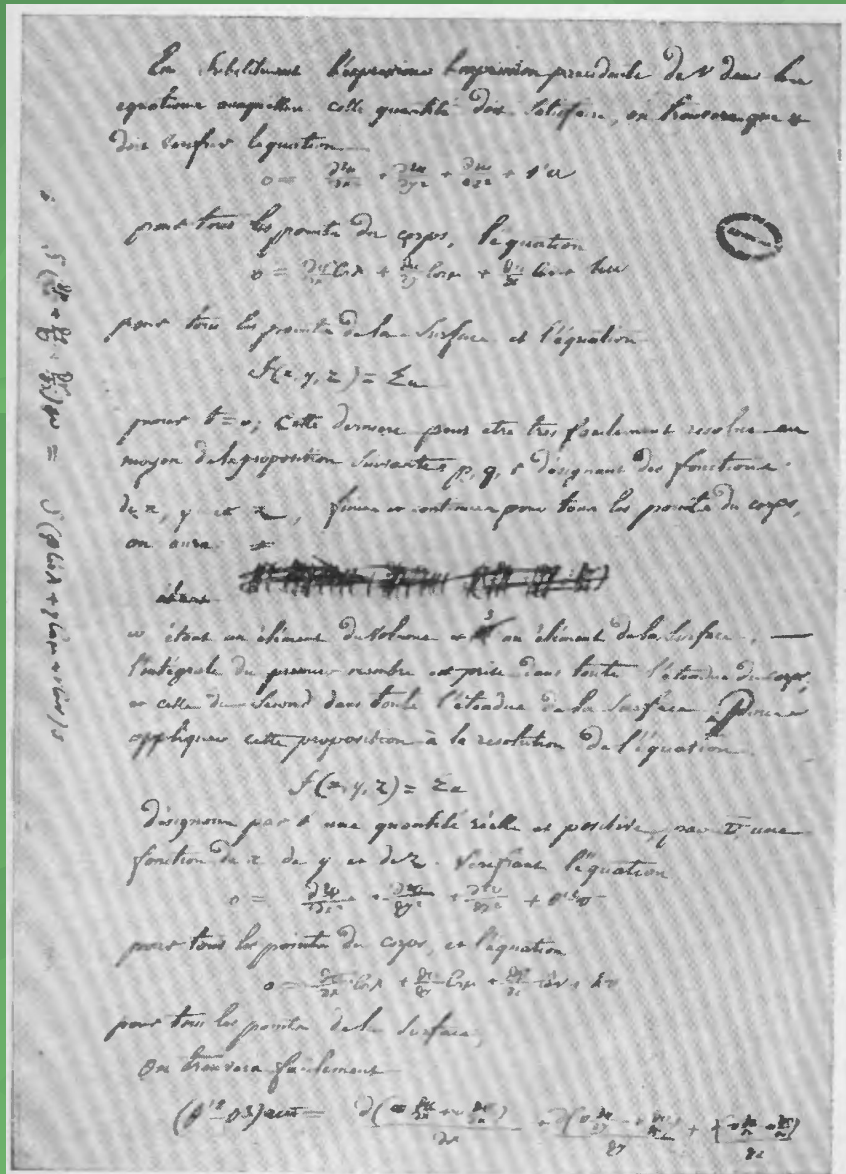 En substituant l'expression précédente de v dans les
équations auxquelles cette quantité doit satisfaire, on trouvera que u
doit vérifier l'équation
0 = ∂²u/∂x² + ∂²u/∂y² + ∂²u/∂z² +
pour tous les points du corps, l'équation
0 = ∂u/∂x Cosλ + ∂u/∂y Cosμ + ∂u/∂z Cosν + hu
pour tous les points de la surface et l'équation
f(x, y, z) = Σu
pour t = 0; Cette dernière peut etre très facilement resolue au
moyen de la proposition suivante p, q, r désignant des fonctions
de x, y et z, finies et continues pour tous les points du corps,
on aura
ω étant un élément du volume et s un élément de la surface,
l'intégrale du premier membre est prise dans toute l'étendue du corps,
et celle du second dans toute l'étendue de la surface. Pour
appliquer cette proposition à la resolution de l'équation
f(x, y, z) = Σu
désignons par une quantité réelle et positive, par une
fonction de x de y et de z vérifiant l'équation
0 = ∂²v/∂x² + ∂²v/∂y² + ∂²v/∂z² +
pour tous les points du corps, et l'équation
0 = ∂v/∂x Cosλ + ∂v/∂y Cosμ + ∂v/∂z Cosν + hv
pour tous les points de la surface,
On trouvera facilement
∫(∂p/∂x + ∂q/∂y + ∂r/∂z)ω = ∫(p Cosλ + q Cosμ + r Cosν)s